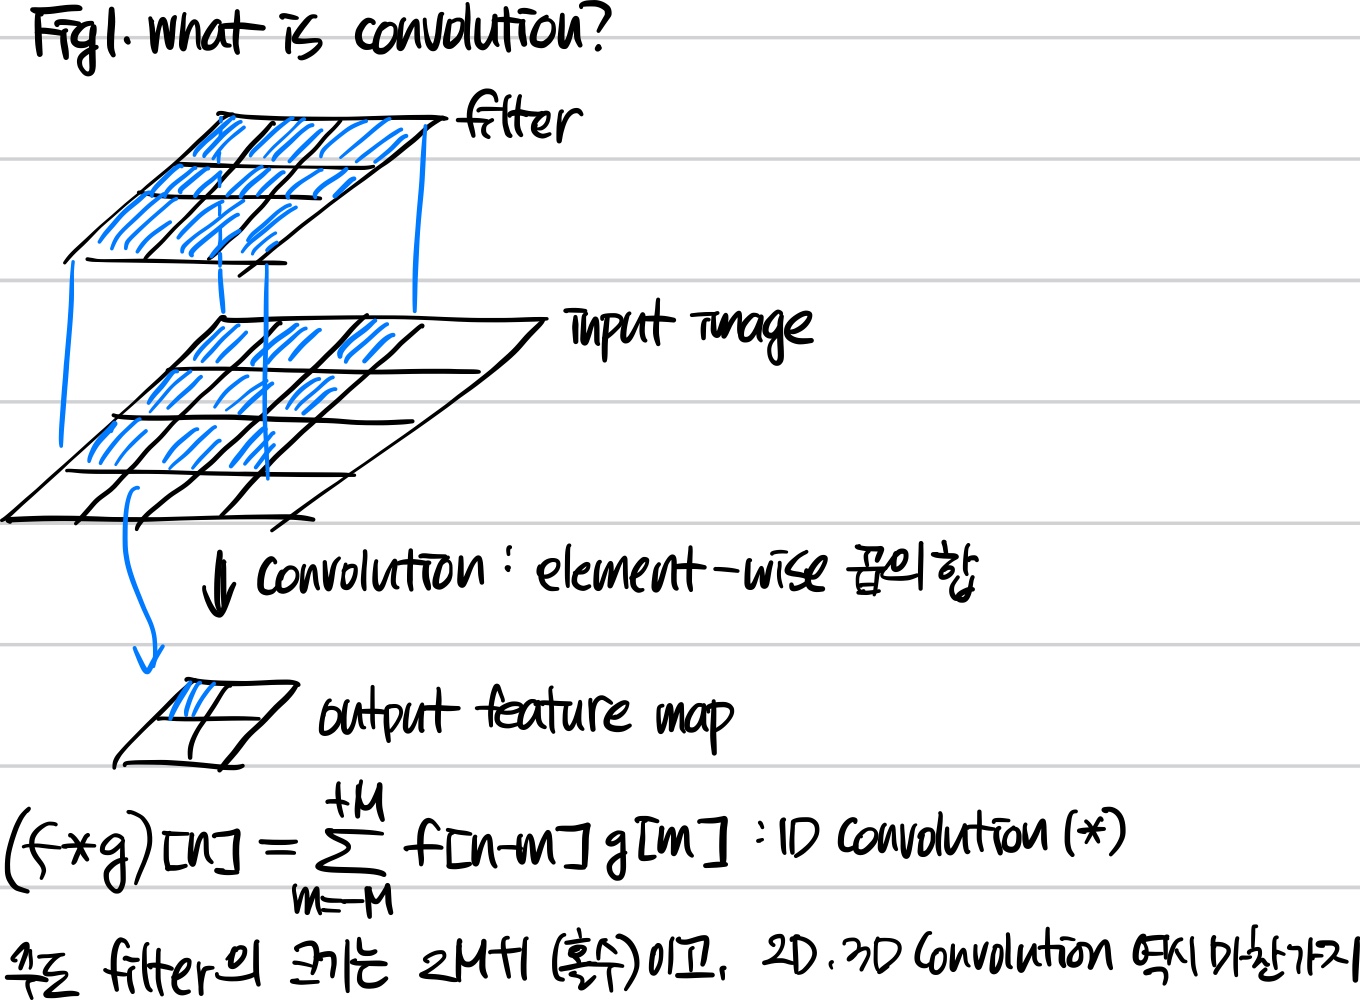 Fig1. What is convolution?
filter
input image
convolution : element-wise 곱의 합
output feature map
(f*g)[n] = \sum_{m=-M}^{+M} f[n-m] g[m] : 1D Convolution (*)
주로 filter의 크기는 2M+1 (홀수)이고, 2D, 3D Convolution 역시 마찬가지